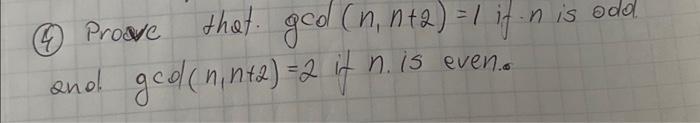 ④ Proove that. gcd(n, n+2)=1 if n is odd
and gcd(n,n+2)=2 if n. is even.